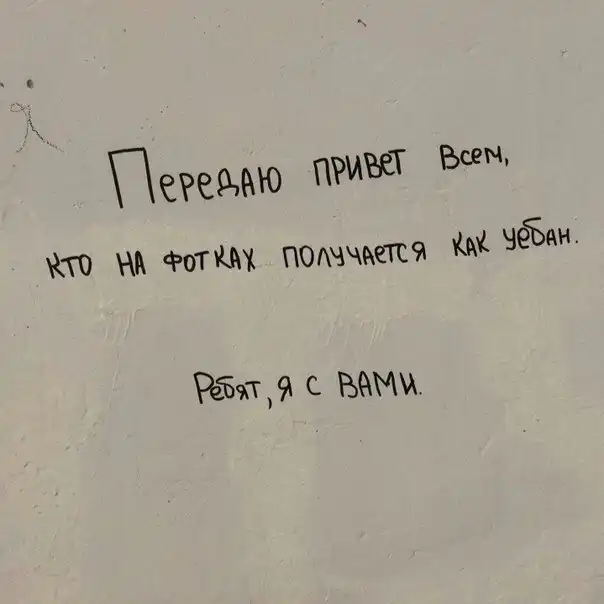 Передаю привет всем,
кто на фотках получается как уебан.
Ребят, я с вами.